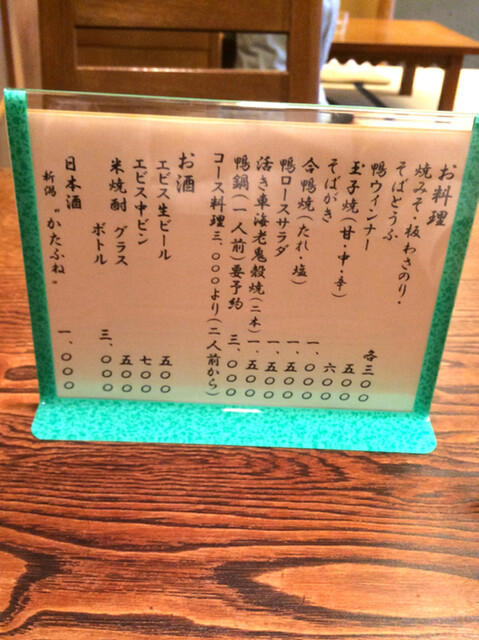 お料理
焼みそ・板わさのり・
そばとうふ 各三〇〇
鴨ウィンナー 五〇〇
玉子焼(甘・中・辛) 六〇〇
そばがき 一、〇〇〇
合鴨焼(たれ・塩) 一、五〇〇
鴨ロースサラダ 一、五〇〇
活き車海老鬼殻焼(二本) 一、五〇〇
鴨鍋(一人前)要予約 三、〇〇〇
コース料理三、〇〇〇より(二人前から)
お酒
エビス生ビール 五〇〇
エビス中ビン 七〇〇
米焼酎 グラス 五〇〇
ボトル 三、〇〇〇
日本酒
新潟 “かたふね” 一、〇〇〇